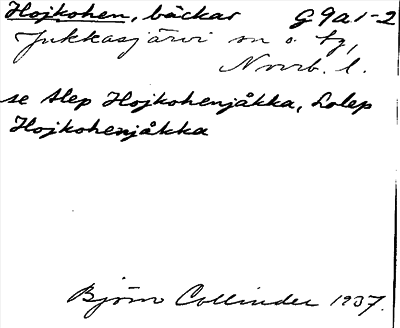 Hojkohen, bäckar G9a1-2
Jukkasjärvi sn o. tg,
Norrb. l.
se Alep Hojkohenjåkka, Lolep
Hojkohenjåkka
Björn Collinder 1937.